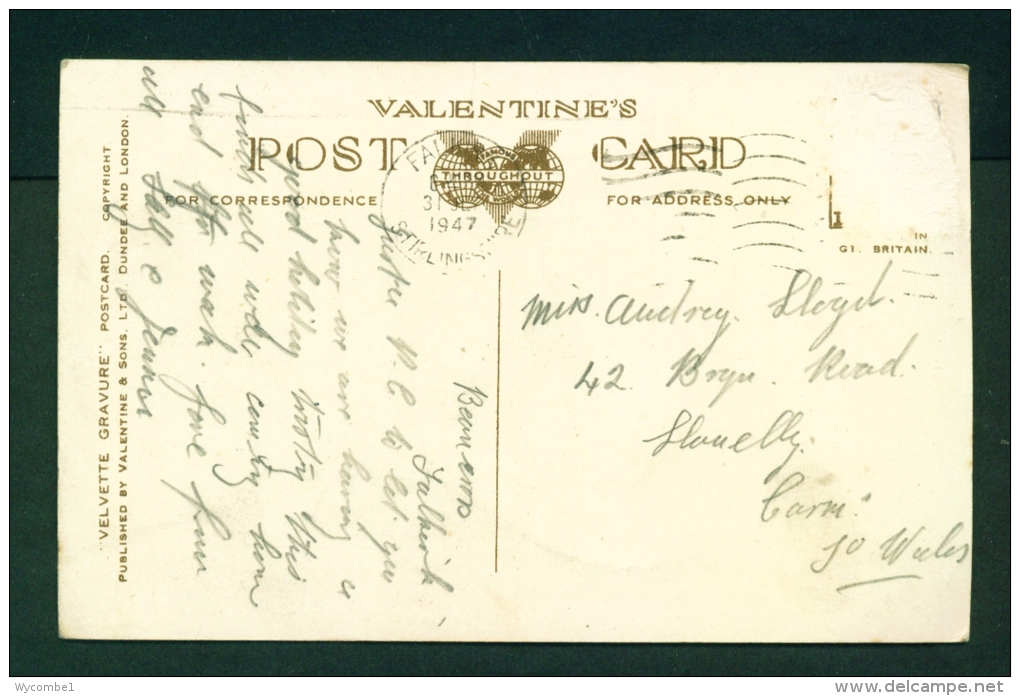 VALENTINE'S
POST CARD
FAMOUS
THROUGHOUT
THE WORLD
FOR CORRESPONDENCE
FOR ADDRESS ONLY
FAL
31 JL
1947
STIRLINGSHIRE
1
IN
GT. BRITAIN.
"VELVETTE GRAVURE" POSTCARD. COPYRIGHT
PUBLISHED BY VALENTINE & SONS, LTD. DUNDEE AND LONDON.
Falkirk
Just a P.C to let you
know we are having a
good holiday this
home
end of week. love from
all
Miss. Audrey. Lloyd.
42. Bryn. Road.
Llanelly.
Carm:
So Wales
Wycombe1
www.delcampe.net